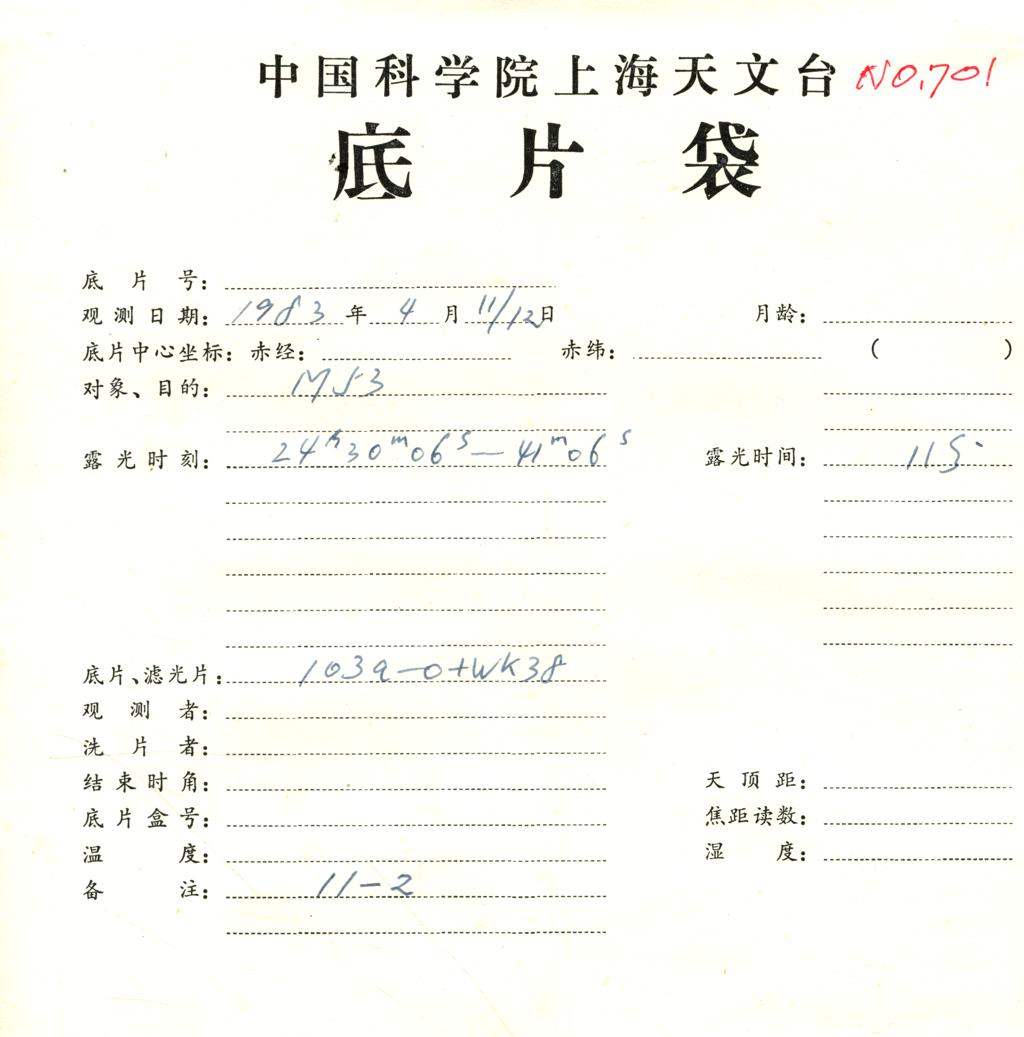 中国科学院上海天文台 NO.701
底片袋
底片号：
观测日期：1983年4月11/12日 月龄：
底片中心坐标：赤经： 赤纬： （ ）
对象、目的：M53
露光时刻：24h30m06s—41m06s 露光时间：11分
底片、滤光片：103a-O+WK38
观测者：
洗片者：
结束时角： 天顶距：
底片盒号： 焦距读数：
温度： 湿度：
备注：11-2